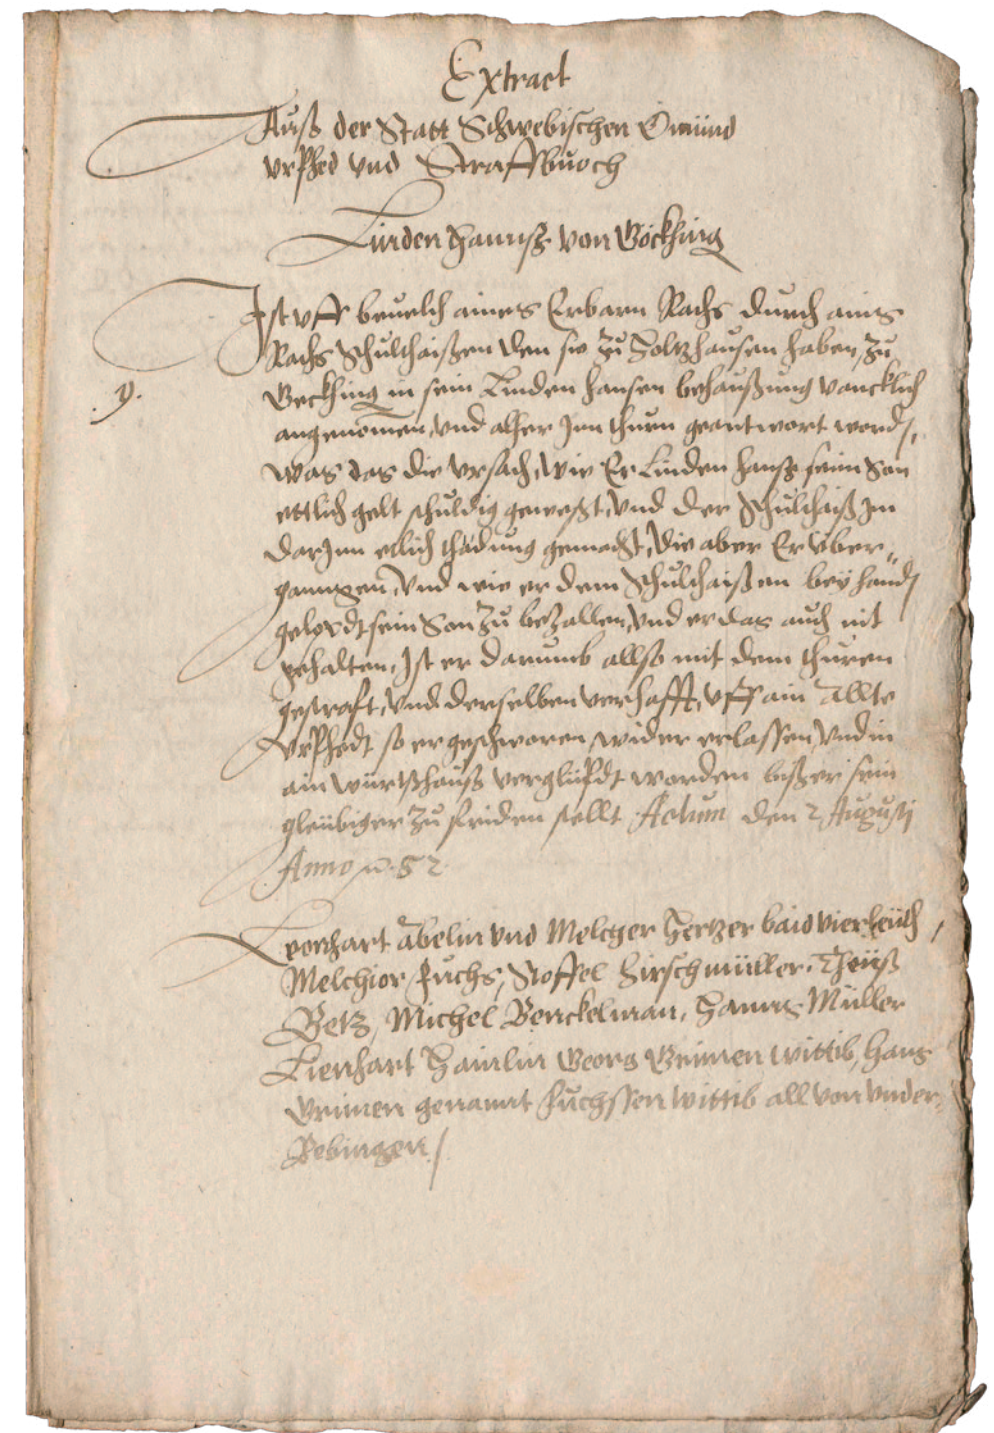 Extract
Auß der Statt Schwebischen Gmünd
Vrphed vnd Straffbuoch
Linden Hannß von Böckhing
Ist vff beuelch aines Erbarn Raths durch aines
Raths Schulthaißen den sie zu Holtzhausen haben, zu
Beckhing in sein Linden Hansen behaußung vancklich
angenomen, vnd alher Inn thurn geantwort word,
was das die vrsach, wie Er Linden Hanß seim Son
ettlich gelt schuldig geweßt, vnd der Schulthaiß Im
darInn etlich thädung gemacht, die aber Er vber-
ganngen, vnd wie er dem Schulthaißen bey hand
gelopdt sein Son zu bezallen, vnd er das auch nit
gehalten, Ist er darumb allso mit dem thuren
gestraft, vnd derselben verhafft, vff ain Allte
Vrphedt so er geschworen, wider erlassen, vnd in
ain würtzhauß verglüpdt worden bißer sein
gleubiger zu friden stellt Actum den 2 Augustj
Anno 52
Leonhart Äbelin vnd Melcher Hertzer baid vierleüth,
Melchior Fuchs, Stoffel Hirschmüller, Theüß
Betz, Michel Benckelman, Hanns Müller
Lienhart Hainlin Georg Brimen wittib, Hans
Brimen genannt Füchssen wittib all von vnder-
Bebingen